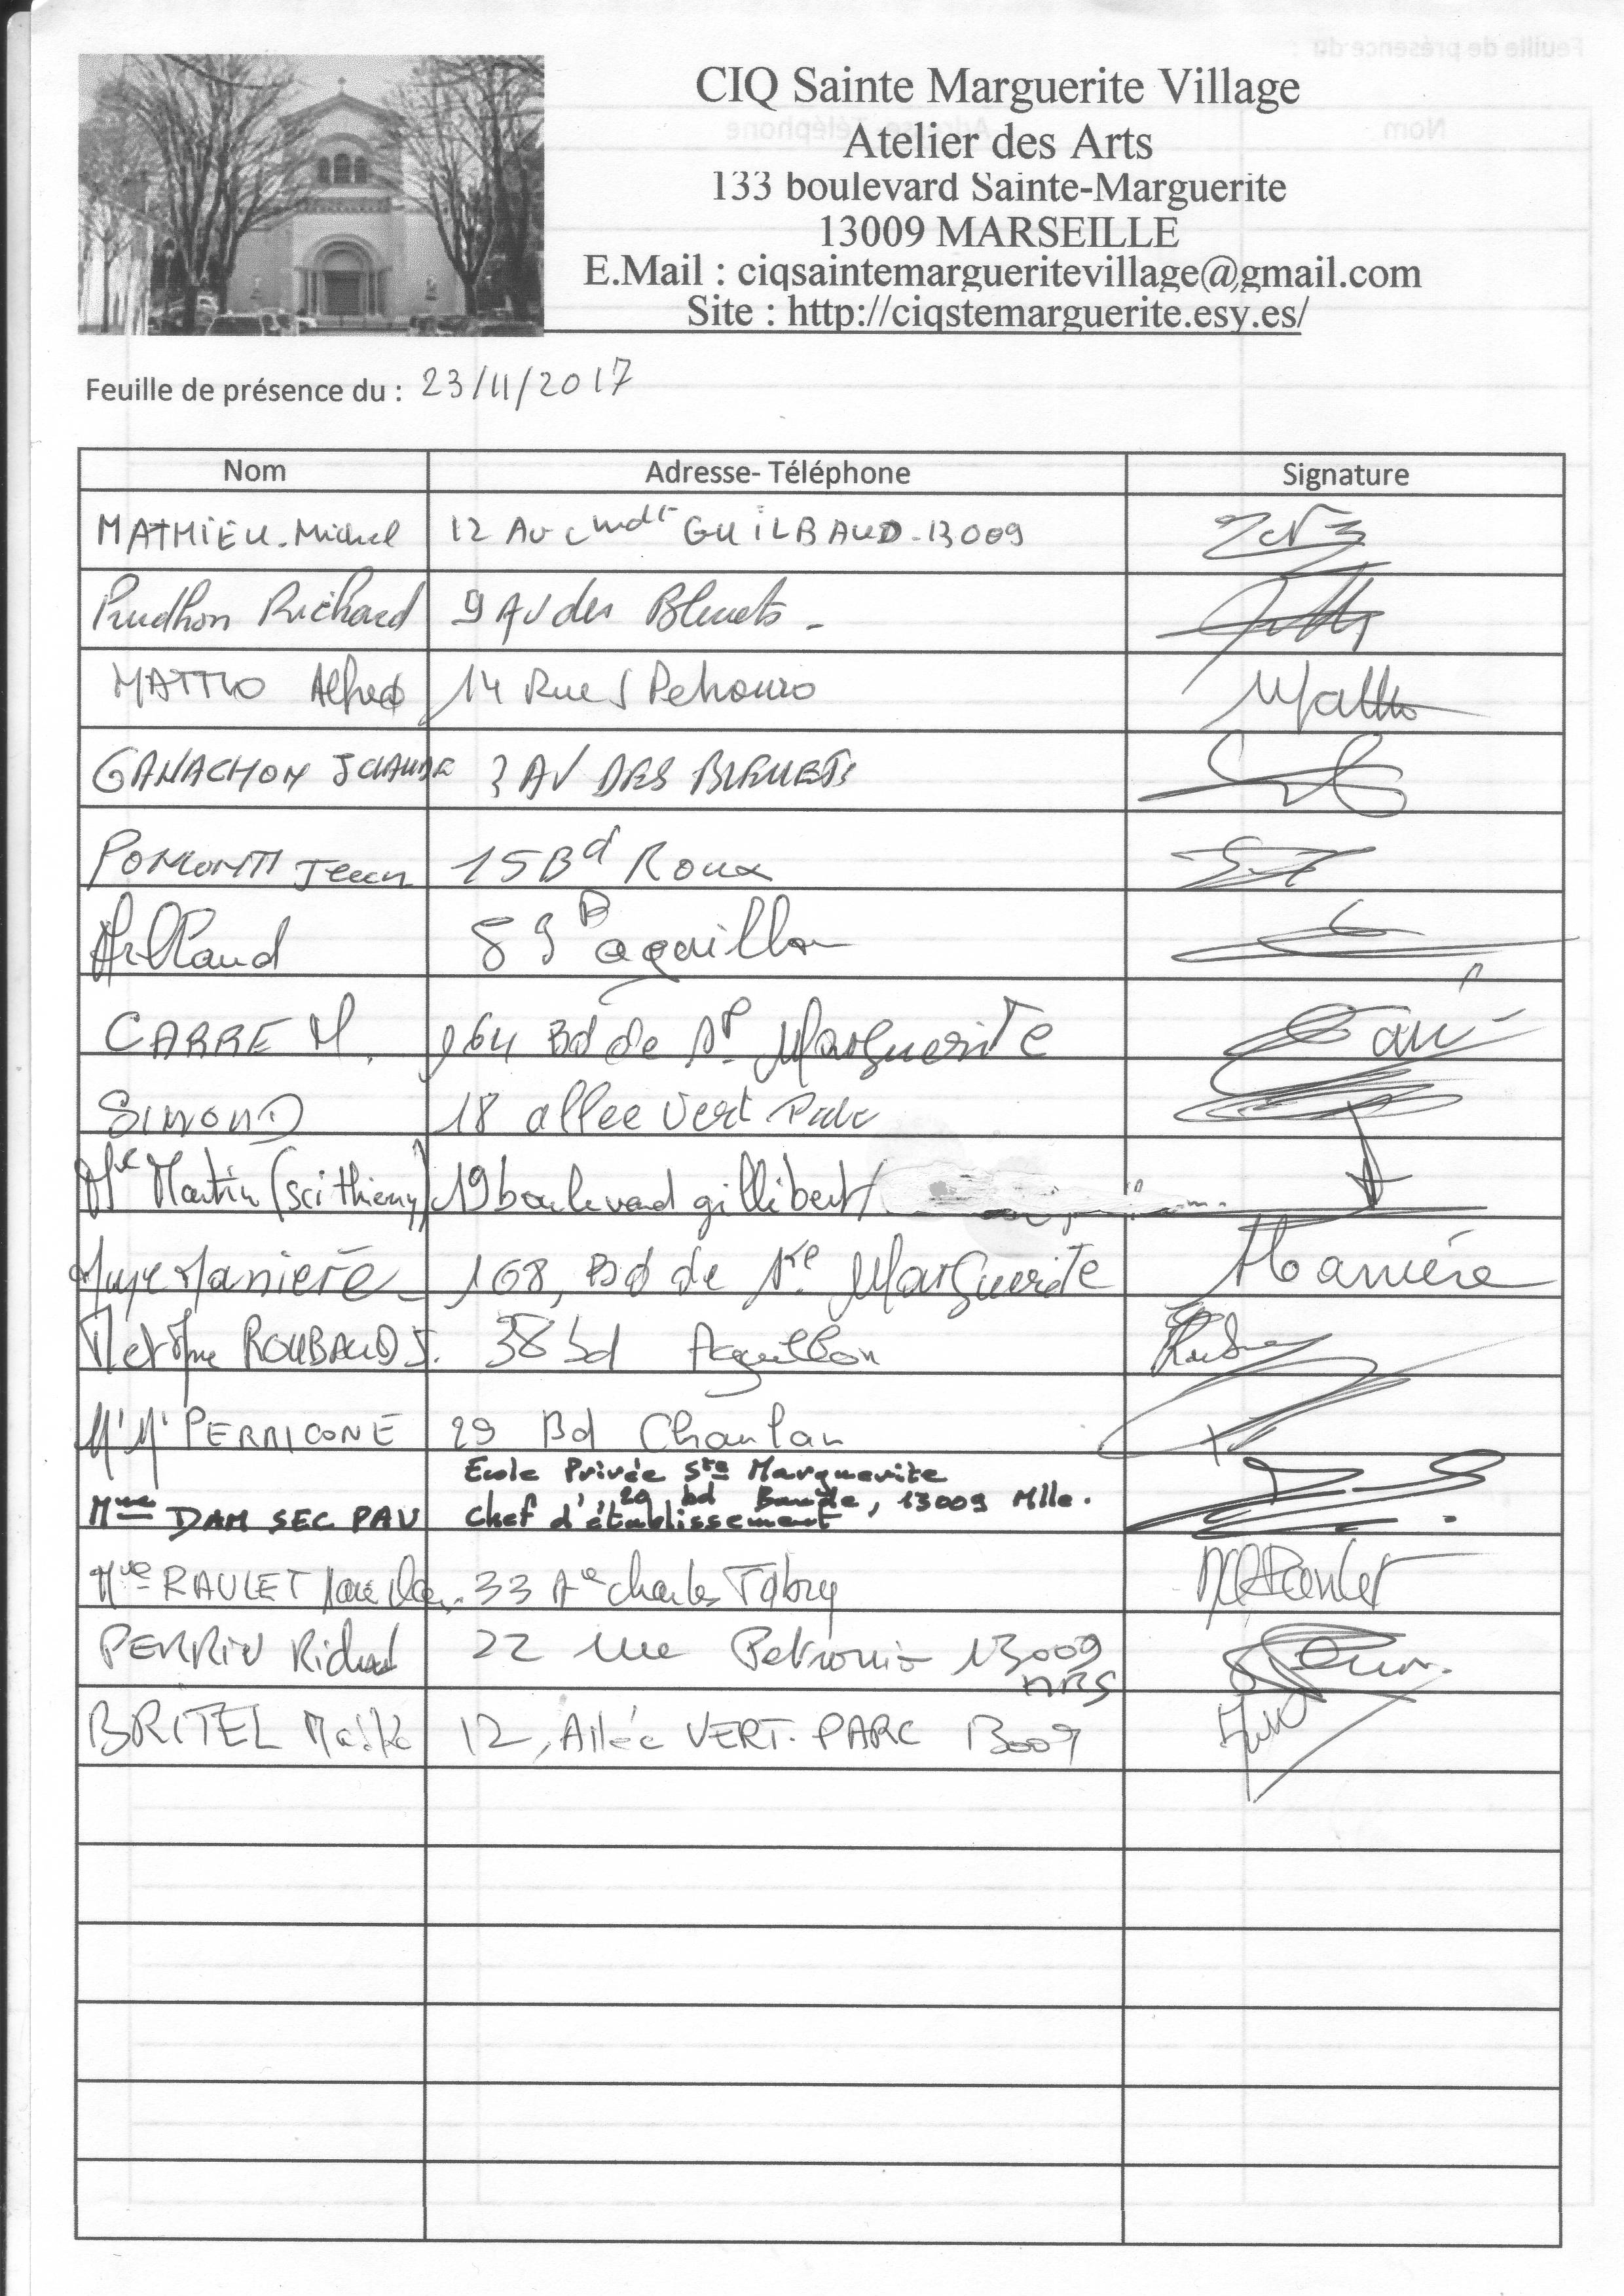 CIQ Sainte Marguerite Village
Atelier des Arts
133 boulevard Sainte-Marguerite
13009 MARSEILLE
E.Mail : ciqsaintemargueritevillage@gmail.com
Site : http://ciqstemarguerite.esy.es/
Feuille de présence du : 23/11/2017
Nom Adresse- Téléphone Signature
MATHIEU-Michel 12 Av Cmdt GUILBAUD-13009
Prudhon Richard 9 AV des Bleuets -
MATTIO Alfred 14 Rue Petronio Mattio
GANACHON JCLAUDE 3 AV DES BLEUETS
POMONTI Jean 15 Bd Roux
89 B aguillon
CARRE M. 164 Bd de Ste Marguerite
SIMOND 18 allee Vert Parc
Me Martin (sci thierry) 19 boulevard gillibert/
Maniere 168, Bd de Ste Marguerite Maniére
M et Mme ROUBAUD J. 38 bd Aguillon
M' M' PERRICONE 29 Bd Chaulan
Ecole Privée Ste Marguerite
29 bd Baude, 13009 Mlle.
Mme DAM SEC PAV Chef d'établissement
Mme RAULET 33 Ae Charles Fabry
PERRIN Richard 22 rue Petronio 13009
MRS
BRITEL 12, Allée VERT-PARC 13009